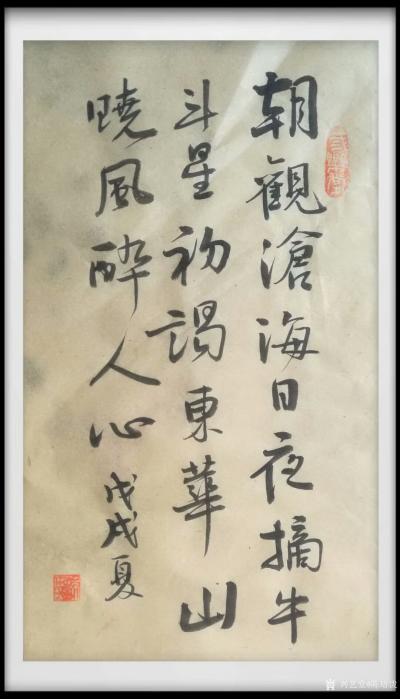 朝觀滄海日夜摘牛
斗星初謁東華山
曉風醉人心
戊戌夏